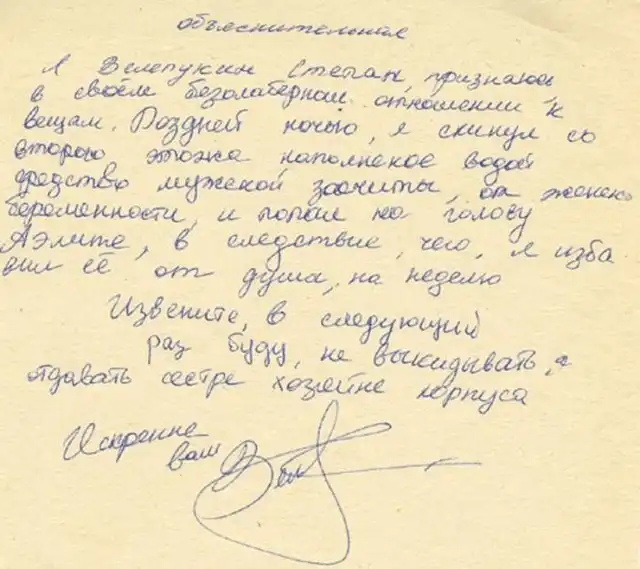 объяснительная
Я Велепукин Степан, признаюсь
в своём безолаберном отношении к
вещам. Поздней ночью, я скинул со
второго этожа наполненое водой
средство мужской защиты, от женской
беременности, и попал на голову
Аэлите, в следствие, чего, я изба
вил её от душа, на неделю
Извените, в следующий
раз буду, не выкидывать, а
отдавать сестре хозяйне корпуса
Искренне
ваш Вел